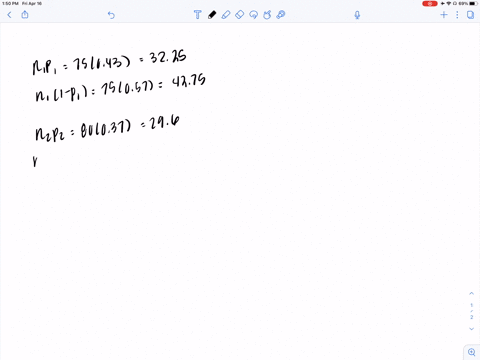 1:50 PM Fri Apr 16
69%
n₁p₁ = 75(0.43) = 32.25
n₁(1-p₁) = 75(0.57) = 42.75
n₂p₂ = 80(0.37) = 29.6
1
2